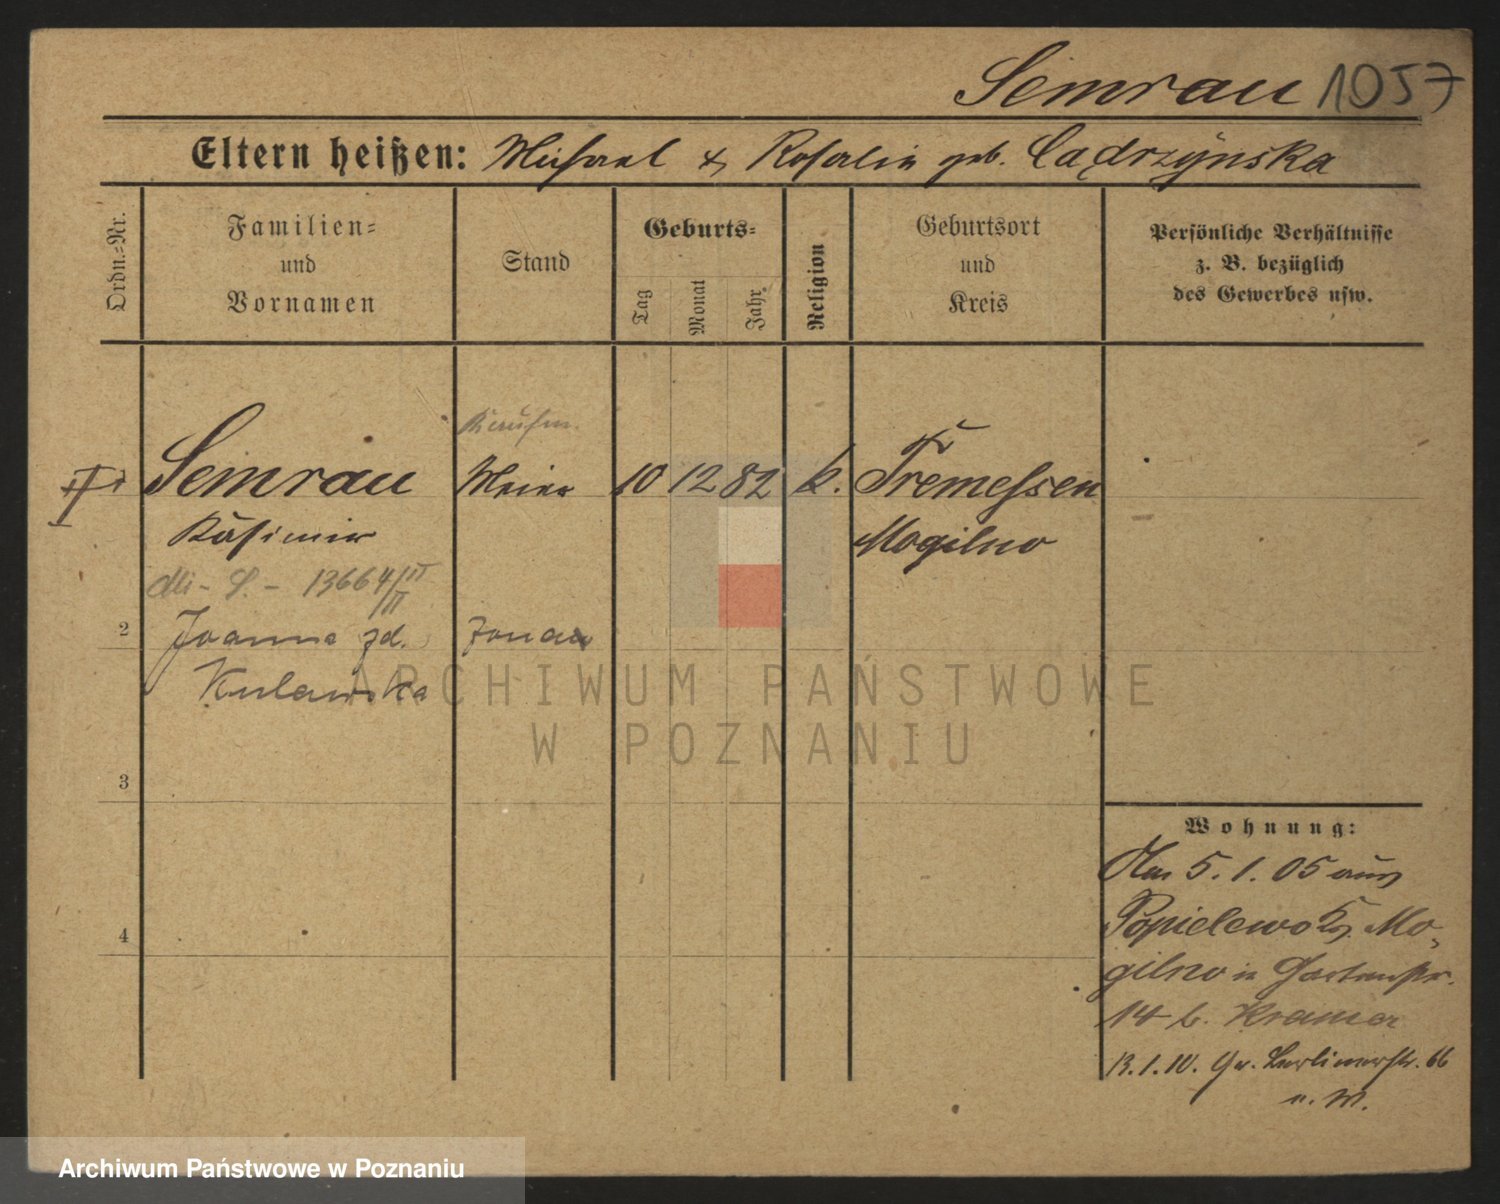 Semrau 1057
Eltern heißen: Michael & Rosalie geb. Cadrzynska
Ordn.-Nr.
Familien-
und
Vornamen
Stand
Geburts-
Tag
Monat
Jahr
Religion
Geburtsort
und
Kreis
Persönliche Verhältnisse
z. B. bezüglich
des Gewerbes usw.
Kaufm.
Semrau Meier 10 12 82 k. Tremessen
Kasimir Mogilno
13664/II
II
2 Joanna zd.
Kulawska
3
4
Wohnung:
Am 5. 1. 05 aus
Popielewo Kr. Mo-
gilno in Gartenstr.
14 b. Kramer
13.1.10. Gr. Berlinerstr. 66
n. W.
ARCHIWUM PAŃSTWOWE
W POZNANIU
Archiwum Państwowe w Poznaniu